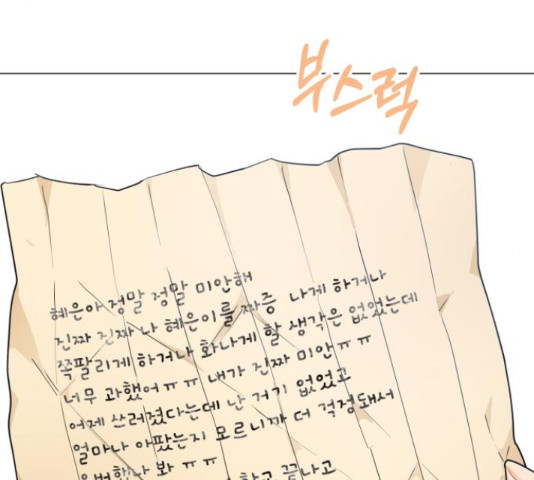 부스럭
혜은아 정말 정말 미안해
진짜 진짜 나 혜은이를 짜증 나게 하거나
쪽팔리게 하거나 화나게 할 생각은 없었는데
너무 과했어ㅠㅠ 내가 진짜 미안ㅠㅠ
어제 쓰러졌다는데 난 거기 없었고
얼마나 아팠는지 모르니까 더 걱정돼서
봐 ㅠㅠ
끝나고